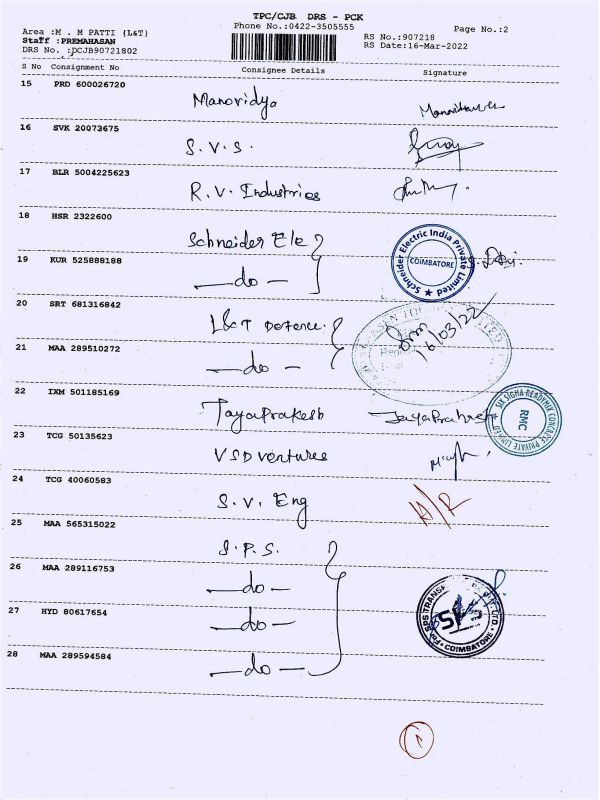 TPC/CJB DRS - PCK
Area :M . M PATTI {L&T}
Phone No.:0422-3505555
Page No.:2
Staff :PREMAHASAN
RS No.:907218
DRS No. :DCJB90721802
RS Date:16-Mar-2022
S No Consignment No Consignee Details Signature
15 PRD 600026720
Manovidya
16 SVK 20073675
S.V.S.
17 BLR 5004225623
R.V. Industries
18 HSR 2322600
Schneider Ele
19 KUR 525888188
—do—
Schneider Electric India Private Limited ★
COIMBATORE
20 SRT 681316842
L&T Defence
16/03/22
21 MAA 289510272
—do—
22 IXM 501185169
JayaPrakash JayaPrakash
SIX SIGMA READYMIX CONCRETE PRIVATE LIMITED
RMC
23 TCG 50135623
VSD Ventures
24 TCG 40060583
S.V. Eng
N/R
25 MAA 565315022
S.P.S.
26 MAA 289116753
—do—
27 HYD 80617654
—do—
SPS TRANS
PVT. LTD.
SPS
COIMBATORE
28 MAA 289594584
—do—
1